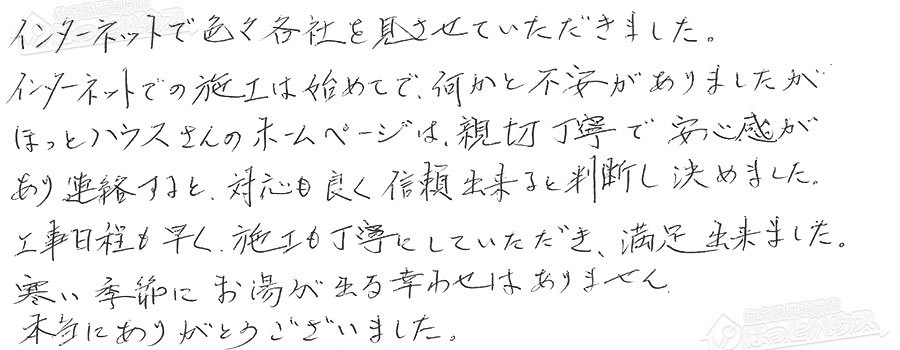 インターネットで色々各社を見させていただきました。
インターネットでの施工は始めてで、何かと不安がありましたが
ほっとハウスさんのホームページは、親切丁寧で安心感が
あり連絡すると、対応も良く信頼出来ると判断し決めました。
工事日程も早く、施工も丁寧にしていただき、満足出来ました。
寒い季節にお湯が出る幸わせはありません。
本当にありがとうございました。
ほっとハウス